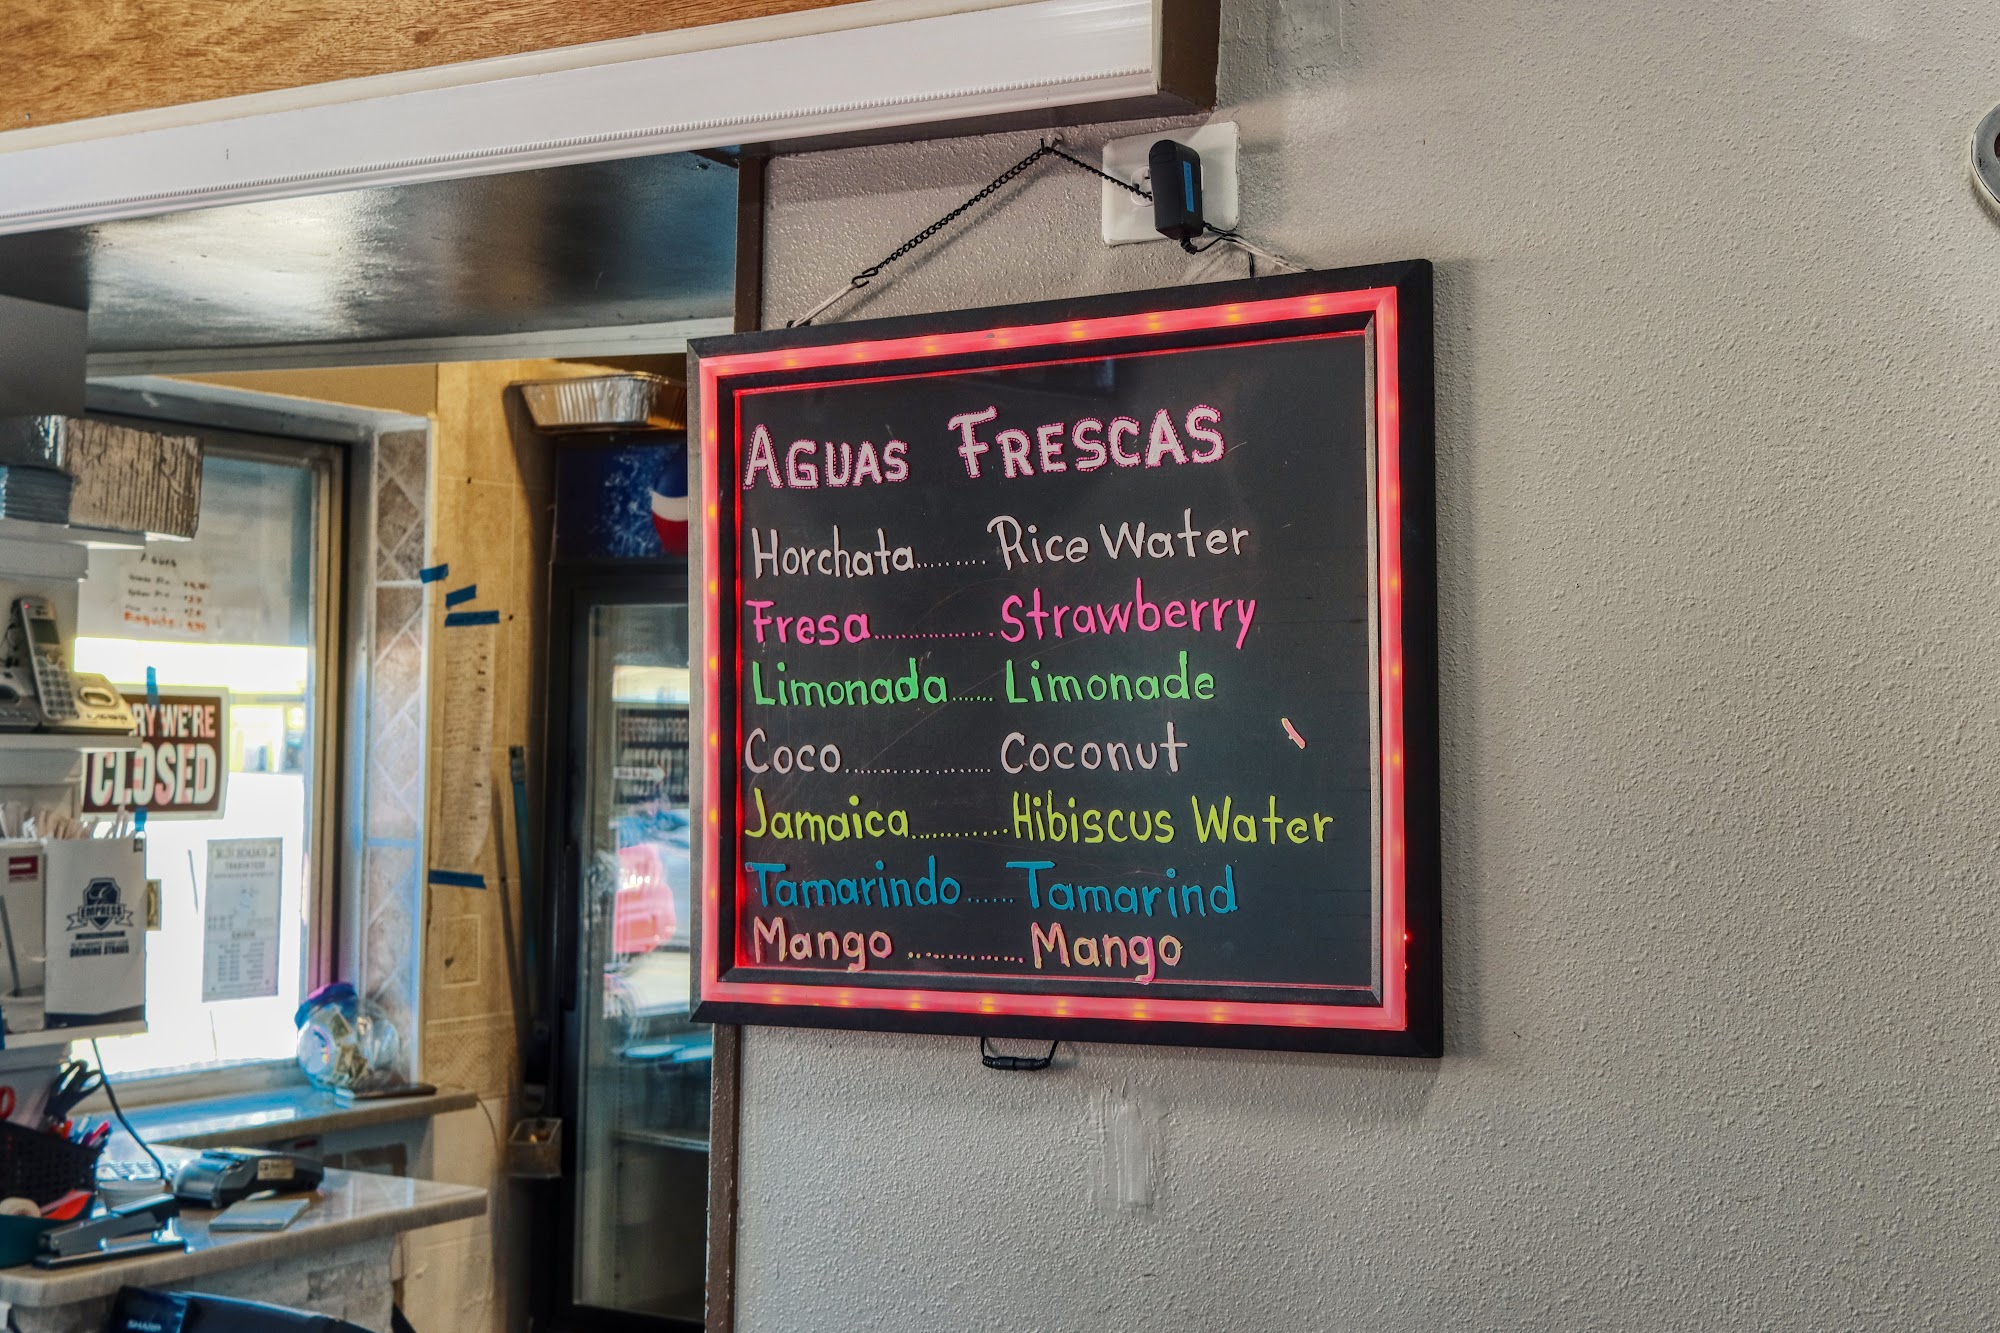 AGUAS FRESCAS
Horchata........Rice Water
Fresa..............Strawberry
Limonada......Limonade
Coco.................Coconut
Jamaica............Hibiscus Water
Tamarindo......Tamarind
Mango .............Mango
Aguas
RY WE'RE
CLOSED
EMPRESS
DRINKING STRAWS
SHARP